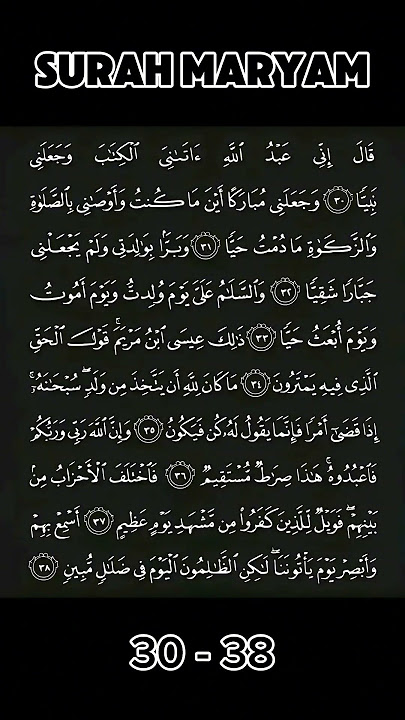 SURAH MARYAM
قَالَ إِنِّي عَبْدُ ٱللَّهِ ءَاتَىٰنِيَ ٱلْكِتَٰبَ وَجَعَلَنِي
نَبِيًّا ٣٠ وَجَعَلَنِي مُبَارَكًا أَيْنَ مَا كُنتُ وَأَوْصَٰنِي بِٱلصَّلَوٰةِ
وَٱلزَّكَوٰةِ مَا دُمْتُ حَيًّا ٣١ وَبَرًّۢا بِوَٰلِدَتِي وَلَمْ يَجْعَلْنِي
جَبَّارًا شَقِيًّا ٣٢ وَٱلسَّلَٰمُ عَلَىَّ يَوْمَ وُلِدتُّ وَيَوْمَ أَمُوتُ
وَيَوْمَ أُبْعَثُ حَيًّا ٣٣ ذَٰلِكَ عِيسَى ٱبْنُ مَرْيَمَ ۚ قَوْلَ ٱلْحَقِّ
ٱلَّذِي فِيهِ يَمْتَرُونَ ٣٤ مَا كَانَ لِلَّهِ أَن يَتَّخِذَ مِن وَلَدٍ ۖ سُبْحَٰنَهُۥٓ ۚ
إِذَا قَضَىٰٓ أَمْرًا فَإِنَّمَا يَقُولُ لَهُۥ كُن فَيَكُونُ ٣٥ وَإِنَّ ٱللَّهَ رَبِّي وَرَبُّكُمْ
فَٱعْبُدُوهُ ۚ هَٰذَا صِرَٰطٌ مُّسْتَقِيمٌ ٣٦ فَٱخْتَلَفَ ٱلْأَحْزَابُ مِنۢ
بَيْنِهِمْ ۖ فَوَيْلٌ لِّلَّذِينَ كَفَرُوا۟ مِن مَّشْهَدِ يَوْمٍ عَظِيمٍ ٣٧ أَسْمِعْ بِهِمْ
وَأَبْصِرْ يَوْمَ يَأْتُونَنَا ۖ لَٰكِنِ ٱلظَّٰلِمُونَ ٱلْيَوْمَ فِي ضَلَٰلٍ مُّبِينٍ ٣٨
30 - 38